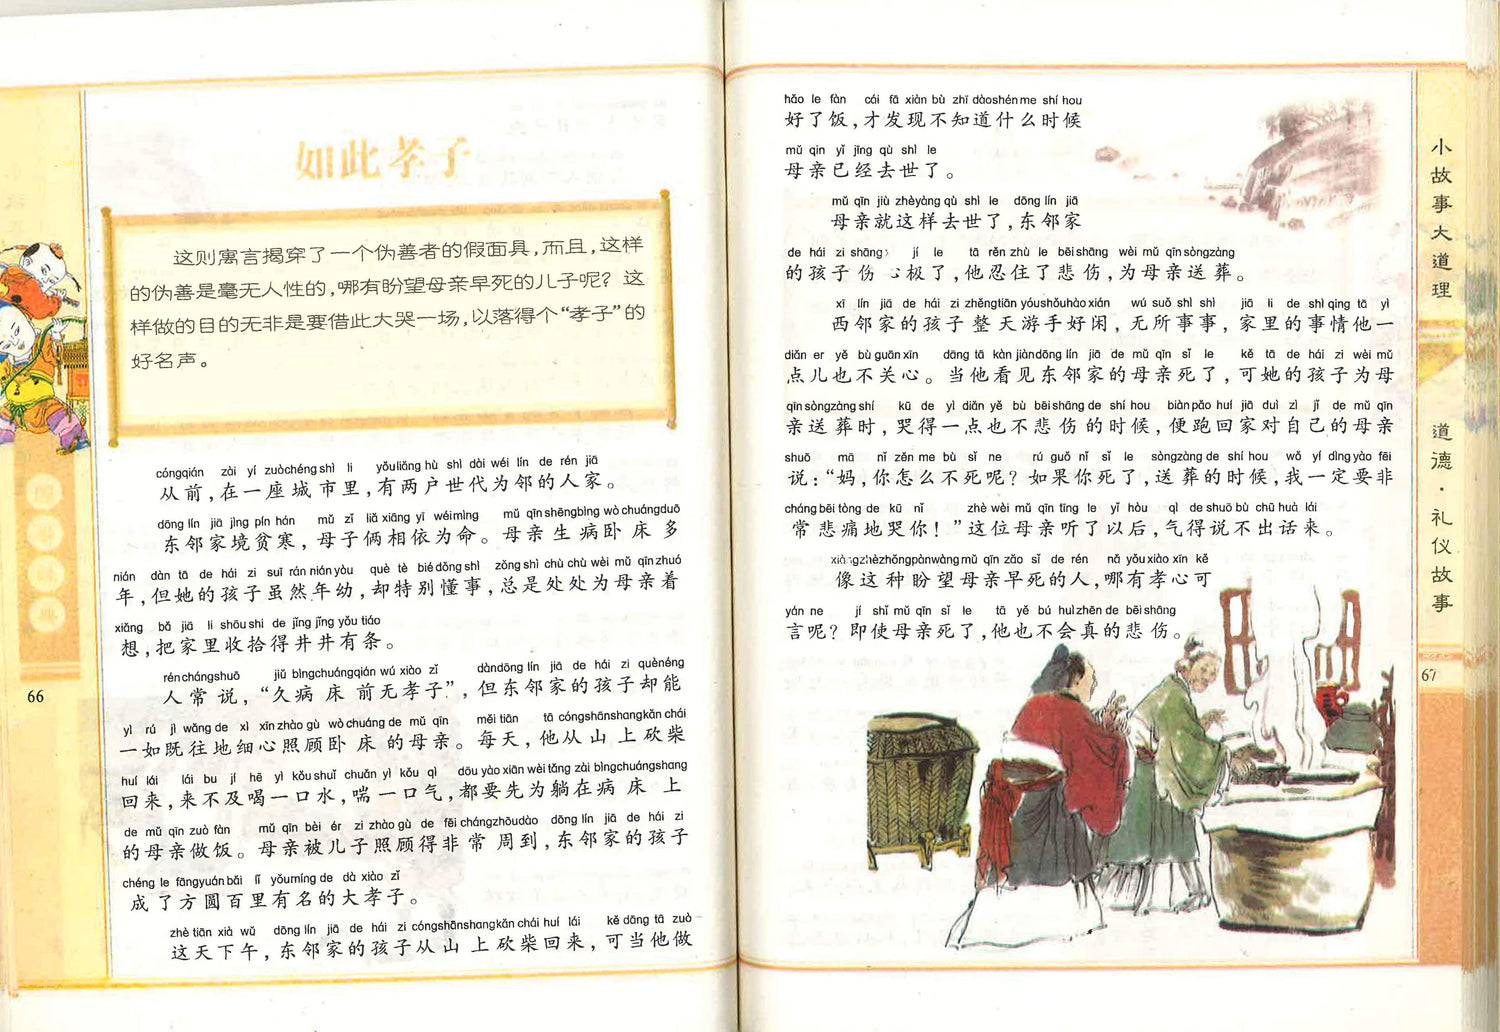 如此孝子
这则寓言揭穿了一个伪善者的假面具，而且，这样
的伪善是毫无人性的，哪有盼望母亲早死的儿子呢？这
样做的目的无非是要借此大哭一场，以落得个“孝子”的
好名声。
cóngqián zài yí zuòchéng shì li yǒuliǎng hù shì dài wéi lín de rén jiā
从前，在一座城市里，有两户世代为邻的人家。
dōng lín jiā jìng pín hán mǔ zǐ liǎ xiāng yī wéimìng mǔ qīnshēngbìng wò chuángduō
东邻家境贫寒，母子俩相依为命。母亲生病卧床多
nián dàn tā de hái zi suī rán niányòu què tè bié dǒng shì zǒng shì chù chù wèi mǔ qīn zhuó
年，但她的孩子虽然年幼，却特别懂事，总是处处为母亲着
xiǎng bǎ jiā li shōu shi de jǐng jǐng yǒu tiáo
想，把家里收拾得井井有条。
rén chángshuō jiǔ bìngchuángqián wú xiào zǐ dàndōng lín jiā de hái zi quènéng
人常说，“久病床前无孝子”，但东邻家的孩子却能
yì rú jì wǎng de xì xīn zhào gù wò chuáng de mǔ qīn měi tiān tā cóngshānshangkǎn chái
一如既往地细心照顾卧床的母亲。每天，他从山上砍柴
huí lái lái bu jí hē yì kǒu shuǐ chuǎn yì kǒu qì dōu yào xiān wèi tǎng zài bìngchuángshang
回来，来不及喝一口水，喘一口气，都要先为躺在病床上
de mǔ qīn zuò fàn mǔ qīn bèi ér zi zhào gù de fēi chángzhōudào dōng lín jiā de hái zi
的母亲做饭。母亲被儿子照顾得非常周到，东邻家的孩子
chéng le fāngyuán bǎi lǐ yǒumíng de dà xiào zǐ
成了方圆百里有名的大孝子。
zhè tiān xià wǔ dōng lín jiā de hái zi cóngshānshangkǎn chái huí lái kě dāng tā zuò
这天下午，东邻家的孩子从山上砍柴回来，可当他做
66
hǎo le fàn cái fā xiàn bù zhī dàoshén me shí hou
好了饭，才发现不知道什么时候
mǔ qin yǐ jīng qù shì le
母亲已经去世了。
mǔ qīn jiù zhèyàng qù shì le dōng lín jiā
母亲就这样去世了，东邻家
de hái zi shāng jí le tā rěn zhù le bēi shāng wèi mǔ qīn sòngzàng
的孩子伤心极了，他忍住了悲伤，为母亲送葬。
xī lín jiā de hái zi zhěngtiān yóushǒuhàoxián wú suǒ shì shì jiā li de shì qing tā yì
西邻家的孩子整天游手好闲，无所事事，家里的事情他一
diǎn er yě bù guān xīn dāng tā kàn jiàndōng lín jiā de mǔ qīn sǐ le kě tā de hái zi wèi mǔ
点儿也不关心。当他看见东邻家的母亲死了，可她的孩子为母
qīn sòngzàng shí kū de yì diǎn yě bù bēi shāng de shí hou biàn pǎo huí jiā duì zì jǐ de mǔ qīn
亲送葬时，哭得一点也不悲伤的时候，便跑回家对自己的母亲
shuō mā nǐ zěn me bù sǐ ne rú guǒ nǐ sǐ le sòngzàng de shí hou wǒ yí dìng yào fēi
说：“妈，你怎么不死呢？如果你死了，送葬的时候，我一定要非
cháng bēi tòng de kū nǐ zhè wèi mǔ qīn tīng le yǐ hòu qì de shuō bù chū huà lái
常悲痛地哭你！”这位母亲听了以后，气得说不出话来。
xiàngzhèzhǒngpànwàng mǔ qīn zǎo sǐ de rén nǎ yǒu xiào xīn kě
像这种盼望母亲早死的人，哪有孝心可
yán ne jí shǐ mǔ qīn sǐ le tā yě bú huì zhēn de bēi shāng
言呢？即使母亲死了，他也不会真的悲伤。
小故事大道理
道德·礼仪故事
67